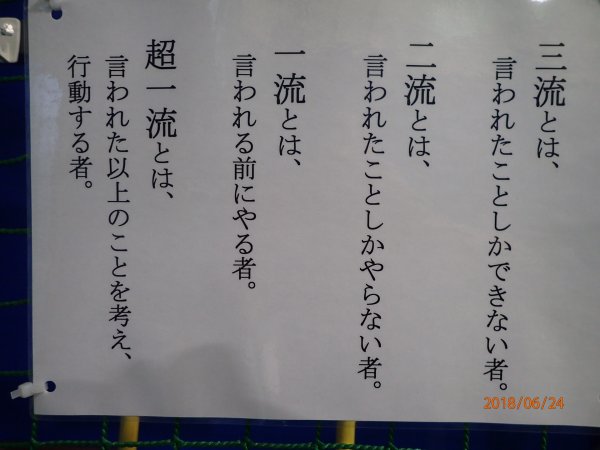 三流とは、
言われたことしかできない者。
二流とは、
言われたことしかやらない者。
一流とは、
言われる前にやる者。
超一流とは、
言われた以上のことを考え、
行動する者。
2018/06/24